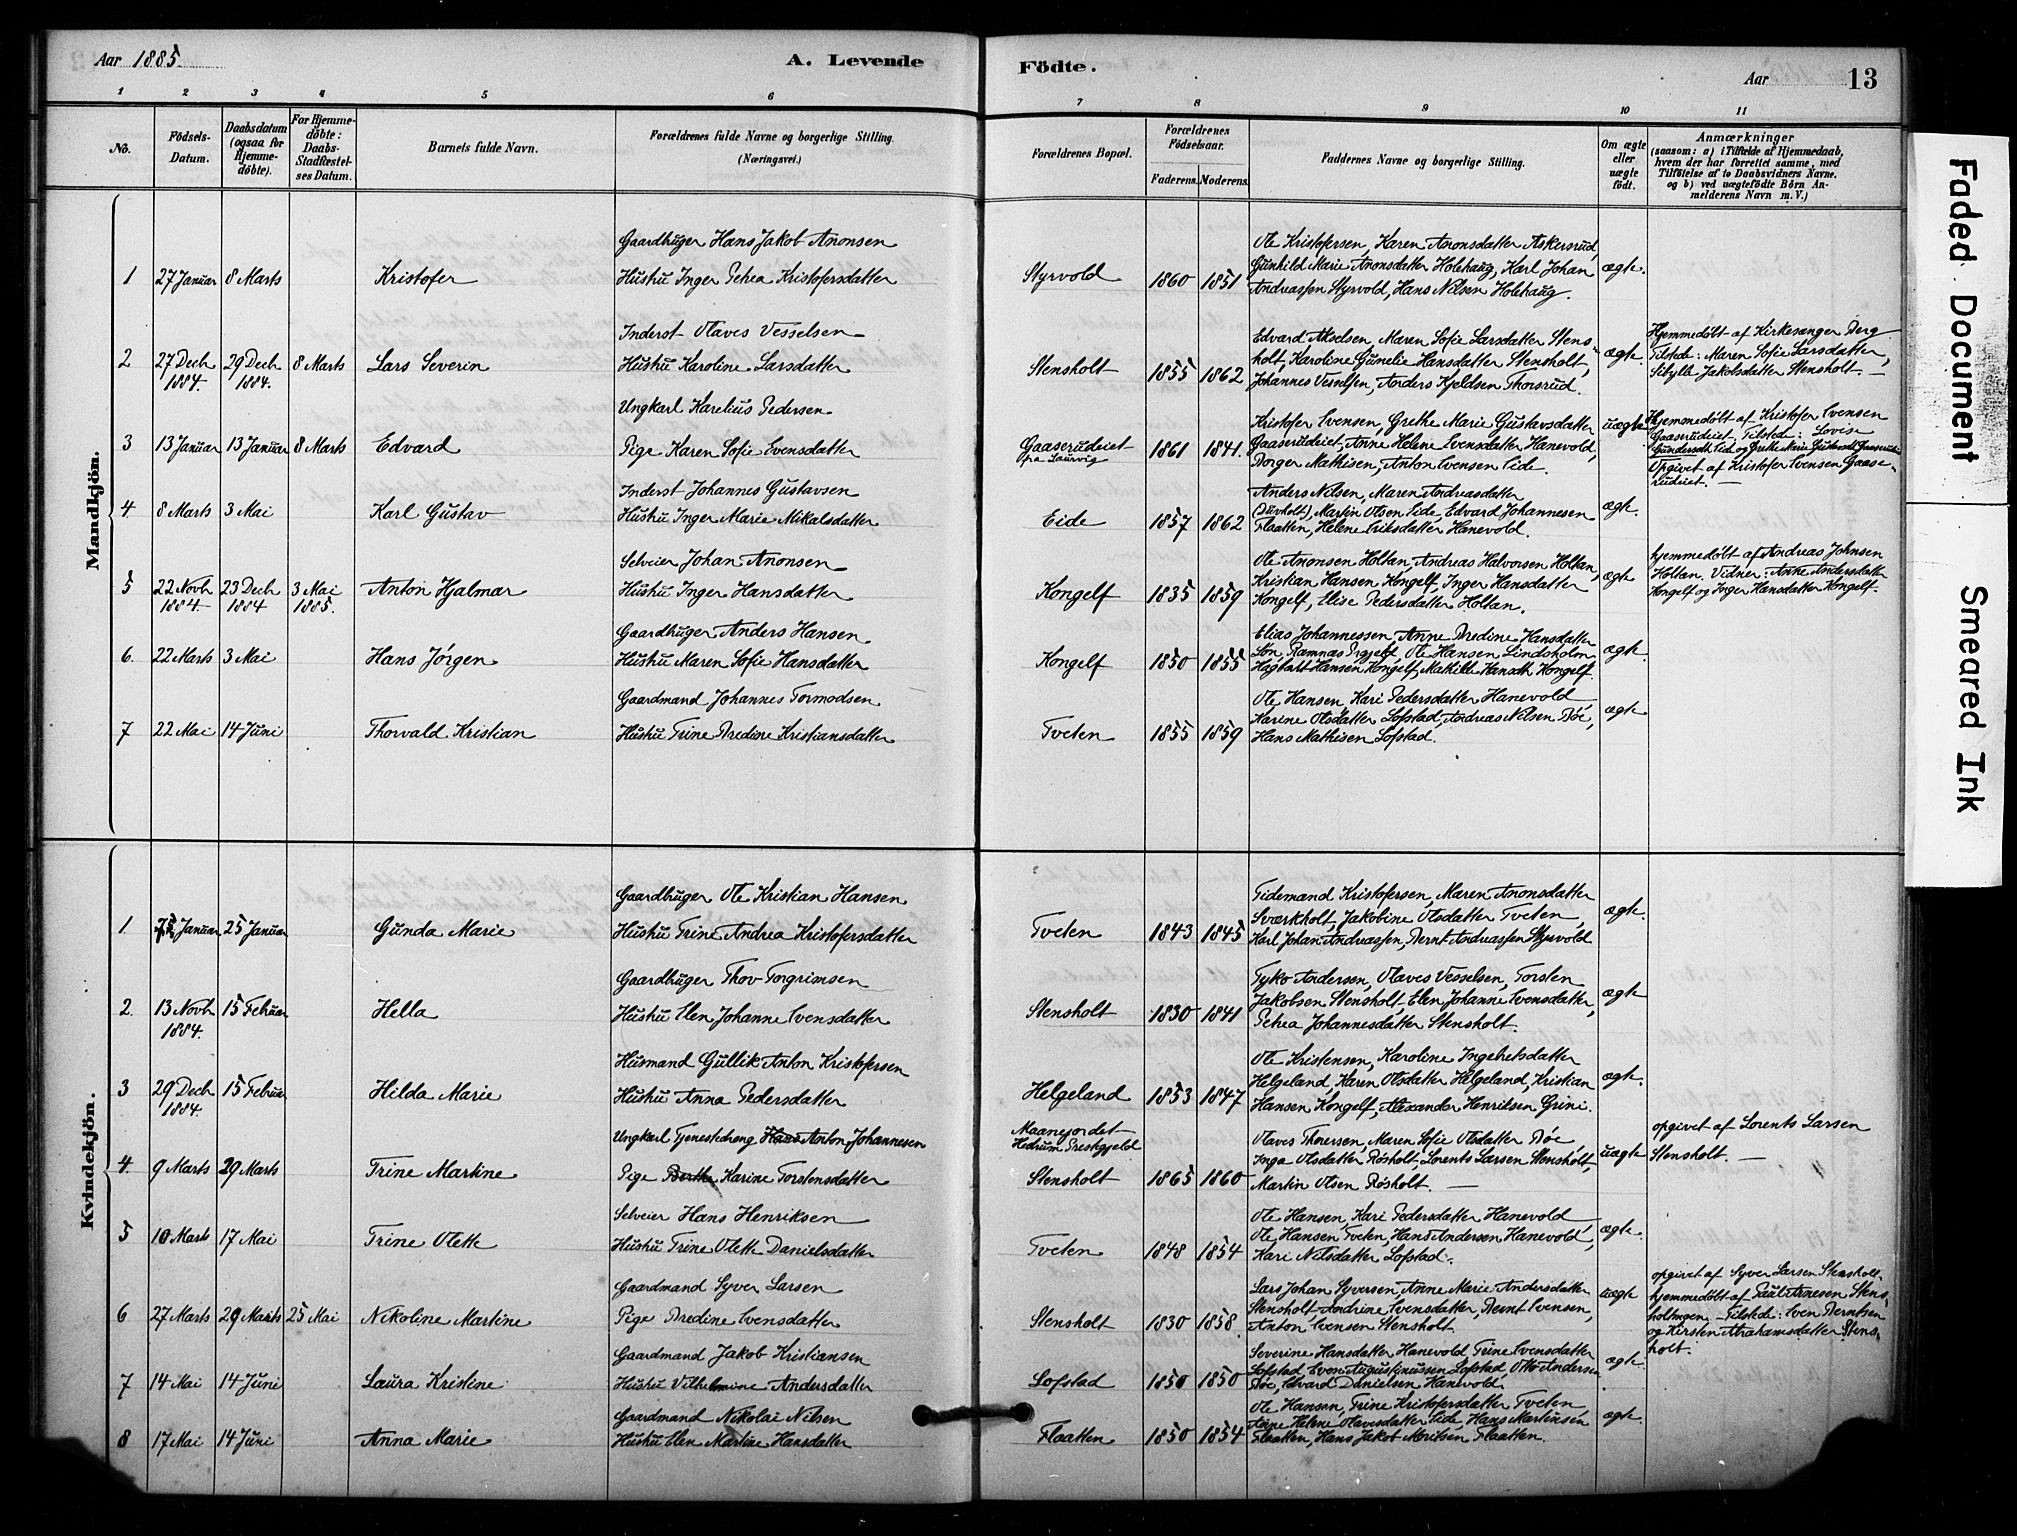 Aar 1885.
A. Levende
Födte.
Aar
13
1 2 3 4 5 6 7 8 9 10 11
No.
Födsels-Datum.
Daabsdatum (ogsaa for Hjemmedöbte).
For Hjemmedöbte: Daabs-Stadfæstelses Datum.
Barnets fulde Navn.
Forældrenes fulde Navne og borgerlige Stilling.
(Næringsvei.)
Forældrenes Bopæl.
Forældrenes Födselsaar.
Faderens. Moderens.
Faddernes Navne og borgerlige Stilling.
Om ægte eller uægte födt.
Anmærkninger
(saasom: a) i Tilfælde af Hjemmedaab,
hvem der har forrettet samme, med
Tilföielse af to Daabsvidners Navne,
og b) ved uægtefödte Börn An-
melderens Navn m. V.)
Mandkjön.
Gaardbruger Hans Jakob Anonsen
1 27 Januar 8 Marts Kristofer Hustru Inger Petrea Kristofersdatter Styrvold 1860 1851 ægte.
Ole Kristofersen, Karen Anonsdatter Askersrud,
Gunhild Marie Anonsdatter Holehaug, Karl Johan
Andreassen Styrvold, Hans Nilsen Holehaug.
Inderst Olaves Vesselsen
2 27 Decb 1884. 29 Decb 1884. 8 Marts Lars Severin Hustru Karoline Larsdatter Stensholt 1855 1862 ægte.
Edvard Akselsen, Maren Sofie Larsdatter Stens-
holt, Karoline Gunelie Hansdatter Stensholt,
Johannes Vesselsen, Anders Kjeldsen Thorsrud.
Hjemmedøbt af Kirkesanger Berg
Tilstede: Maren Sofie Larsdatter,
Sibylle Jakobsdatter Stensholt. —
Ungkarl Karelius Pedersen
3 13 Januar 13 Januar 8 Marts Edvard Pige Karen Sofie Evensdatter Gaaserudeiet fra Laurvig 1861 1841. uægte
Kristofer Evensen, Grethe Marie Gustavsdatter
Gaaserudeiet, Anne Helene Evensdatter Hanevold,
Borger Mathisen, Anton Evensen Eide.
Hjemmedøbt af Kristofer Evensen
Gaaserudeiet. Tilstede: Lovise
Gundersdtr. Eide og Grethe Marie
Opgivet af Kristofer Evensen Gaase-
rudeiet. —
Inderst Johannes Gustavsen
4 8 Marts 3 Mai Karl Gustav Hustru Inger Marie Mikalsdatter Eide 1857 1862 ægte.
Anders Nilsen, Maren Andreasdatter
Martin Olsen Eide, Edvard Johannesen
Flaatten, Helene Eriksdatter Hanevold.
Selveier Johan Anonsen
5 22 Novb 1884. 23 Decb 1884 3 Mai 1885. Anton Hjalmar Hustru Inger Hansdatter Kongelf 1835 1859 ægte
Ole Anonsen Holtan, Andreas Halvorsen Holtan,
Kristian Hansen Kongelf, Inger Hansdatter
Kongelf, Elise Pedersdatter Holtan.
hjemmedøbt af Andreas Johnsen
Holtan. Vidner: Anne Andersdatter
Kongelf og Inger Hansdatter Kongelf.
Gaardbruger Anders Hansen
6. 22 Marts 3 Mai Hans Jörgen Hustru Maren Sofie Hansdatter Kongelf 1850 1855 ægte.
Elias Johannessen, Anne Bredine Hansdatter
Ramnæs Prgjeld, Ole Hansen Lindsholm
Hagbart Hansen Kongelf, Mathilde Hansdtr. Kongelf.
Gaardmand Johannes Tormodsen
7 22 Mai 14 Juni Thorvald Kristian Hustru Trine Bredine Kristiansdatter Tveten 1855 1859 ægte
Ole Hansen, Kari Pedersdatter Hanevold
Karine Olsdatter Lofstad, Andreas Nilsen Bøe,
Hans Mathisen Lofstad.
Kvindekjön.
Gaardbruger Ole Kristian Hansen
1 Januar 25 Januar Gunda Marie Hustru Trine Andrea Kristofersdatter Tveten 1843 1845 ægte.
Tidemand Kristofersen, Maren Anonsdatter
Sværkholt, Jakobine Olsdatter Tveten,
Karl Johan Andreassen, Bernt Andreassen Styrvold
Gaardbruger Thov Torgrimsen
2. 13 Novb 1884. 15 Februar Hella Hustru Elen Johanne Evensdatter Stensholt 1830 1841 ægte
Tyko Andersen, Olaves Vesselsen, Torsten
Jakobsen Stensholt, Elen Johanne Evensdatter,
Petrea Johannesdatter Stensholt.
Husmand Gullik Anton Kristofersen
3 29 Decb 1884. 15 Februar Hilda Marie Hustru Anna Pedersdatter Helgeland 1853 1847 ægte.
Ole Kristensen, Karoline Ingebretsdatter
Helgeland, Karen Olsdatter Helgeland, Kristian
Hansen Kongelf, Alexander Henriksen Grini.
Ungkarl Tjenestedreng Hans Anton Johannesen Maanejordet Hedrum Prestgjeld
4. 9 Marts 29 Marts Trine Martine Pige Berthe Karine Torstensdatter Stensholt 1865 1860 uægte
Olaves Thoresen, Maren Sofie Olsdatter Bøe,
Inga Olsdatter Røsholt, Lorents Larsen Stensholt,
Martin Olsen Røsholt. —
opgivet af Lorents Larsen
Stensholt. —
Selveier Hans Henriksen
5 10 Marts 17 Mai Trine Olette Hustru Trine Olette Danielsdatter Tveten 1848 1854 ægte.
Ole Hansen, Kari Pedersdatter Hanevold
Ole Hansen Tveten, Hans Andersen Hanevold,
Kari Nilsdatter Lofstad.
Gaardmand Syver Larsen
6 27 Marts 29 Marts 25 Mai Nikoline Martine Pige Bredine Evensdatter Stensholt 1830 1858. uægte
Lars Johan Syversen, Anne Marie Andersdatter
Stensholt, Andrine Evensdatter, Bernt Evensen,
Anton Evensen Stensholt.
opgivet af Syver Larsen Stensholt.
hjemmedøbt af Paul Arnesen Stens-
holtmoen. Tilstede: Even Berntsen
og Kirsten Abrahamsdatter Stens-
holt.
Gaardmand Jakob Kristiansen
7 14 Mai 14 Juni Laura Kristine Hustru Vilhelmine Andersdatter Lofstad 1850 1850 ægte.
Severine Hansdatter Hanevold, Trine Evensdatter
Lofstad, Even Augustinussen Lofstad, Otto Andersen
Bøe, Edvard Danielsen Hanevold.
Gaardmand Nikolai Nilsen
8 17 Mai 14 Juni Anna Marie Hustru Elen Martine Hansdatter Flaatten 1850 1854 ægte.
Ole Hansen, Trine Kristofersdatter Tveten,
Anne Helene Olavesdatter Eide, Hans Martinsen
Flaatten, Hans Jakob Moritsen Flaatten.
Faded Document
Smeared Ink